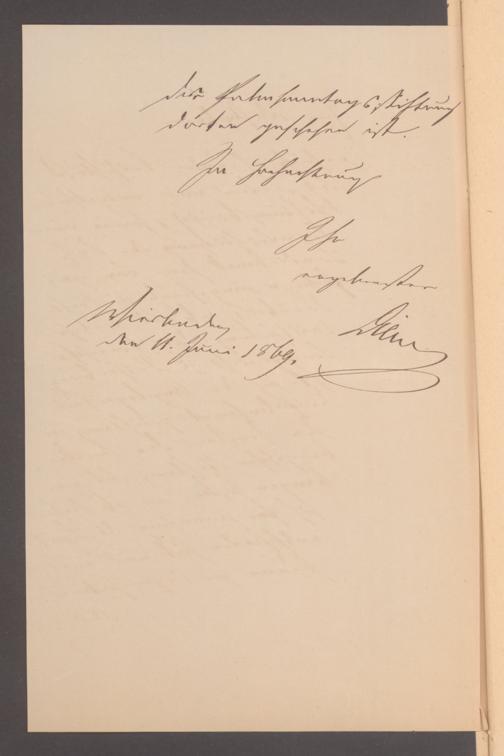 der Palmsonntagsstiftung
dorten geschehen ist.
In Hochachtung
Ihr
ergebenster
Wiesbaden
den 11. Juni 1869.